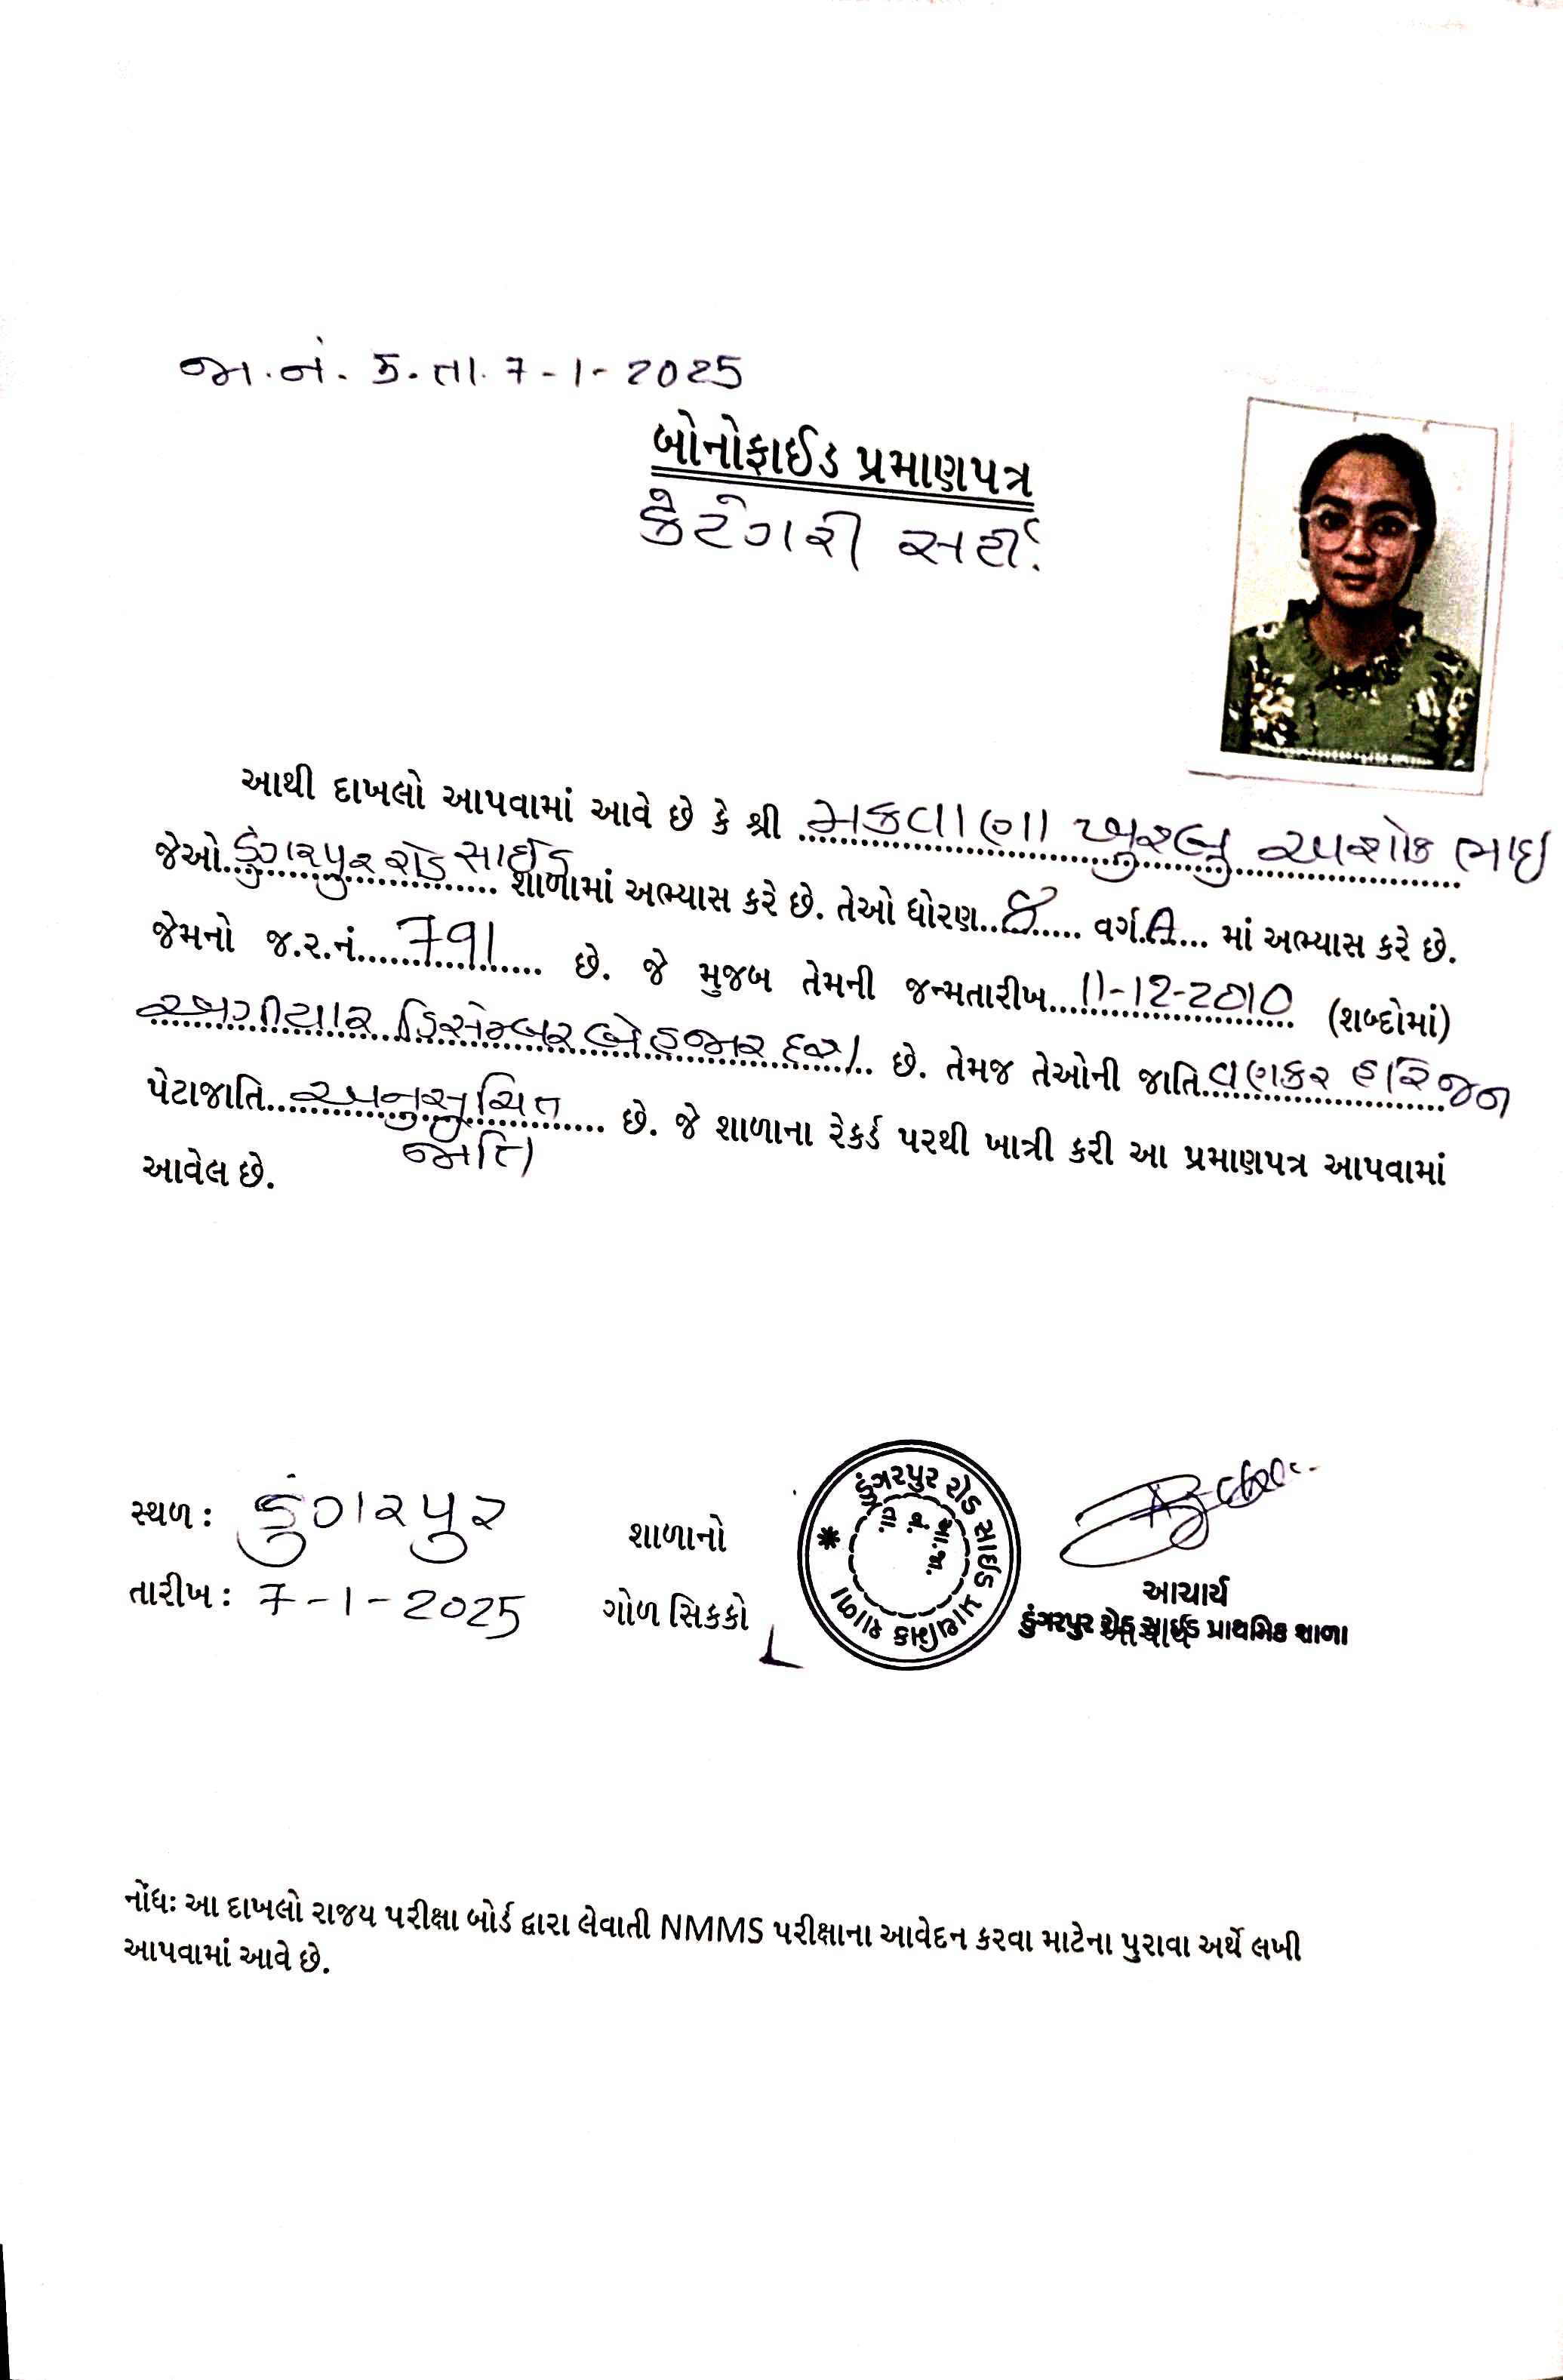 જા.નં. ક.તા. 7-1-2025
બોનોફાઈડ પ્રમાણપત્ર
કેટેગરી સર્ટી.
આથી દાખલો આપવામાં આવે છે કે શ્રી મકવાણા ખુશ્બુ અશોક ભાઇ
જેઓ ડુંગરપુર રોડ સાઈડ શાળામાં અભ્યાસ કરે છે. તેઓ ધોરણ 8 વર્ગ A માં અભ્યાસ કરે છે.
જેમનો જ.ર.નં. 791 છે. જે મુજબ તેમની જન્મતારીખ 11-12-2010 (શબ્દોમાં)
અગીયાર ડિસેમ્બર બે હજાર દશ છે. તેમજ તેઓની જાતિ વણકર હરિજન
પેટાજાતિ અનુસુચિત જાતિ છે. જે શાળાના રેકર્ડ પરથી ખાત્રી કરી આ પ્રમાણપત્ર આપવામાં
આવેલ છે.
સ્થળ : ડુંગરપુર
તારીખ : 7-1-2025
શાળાનો
ગોળ સિકકો
ડુંગરપુર રોડ સાઇડ પ્રાથમિક શાળા
તા. જી.
આચાર્ય
ડુંગરપુર રોડ સાઈડ પ્રાથમિક શાળા
નોંધઃ આ દાખલો રાજ્ય પરીક્ષા બોર્ડ દ્વારા લેવાતી NMMS પરીક્ષાના આવેદન કરવા માટેના પુરાવા અર્થે લખી
આપવામાં આવે છે.